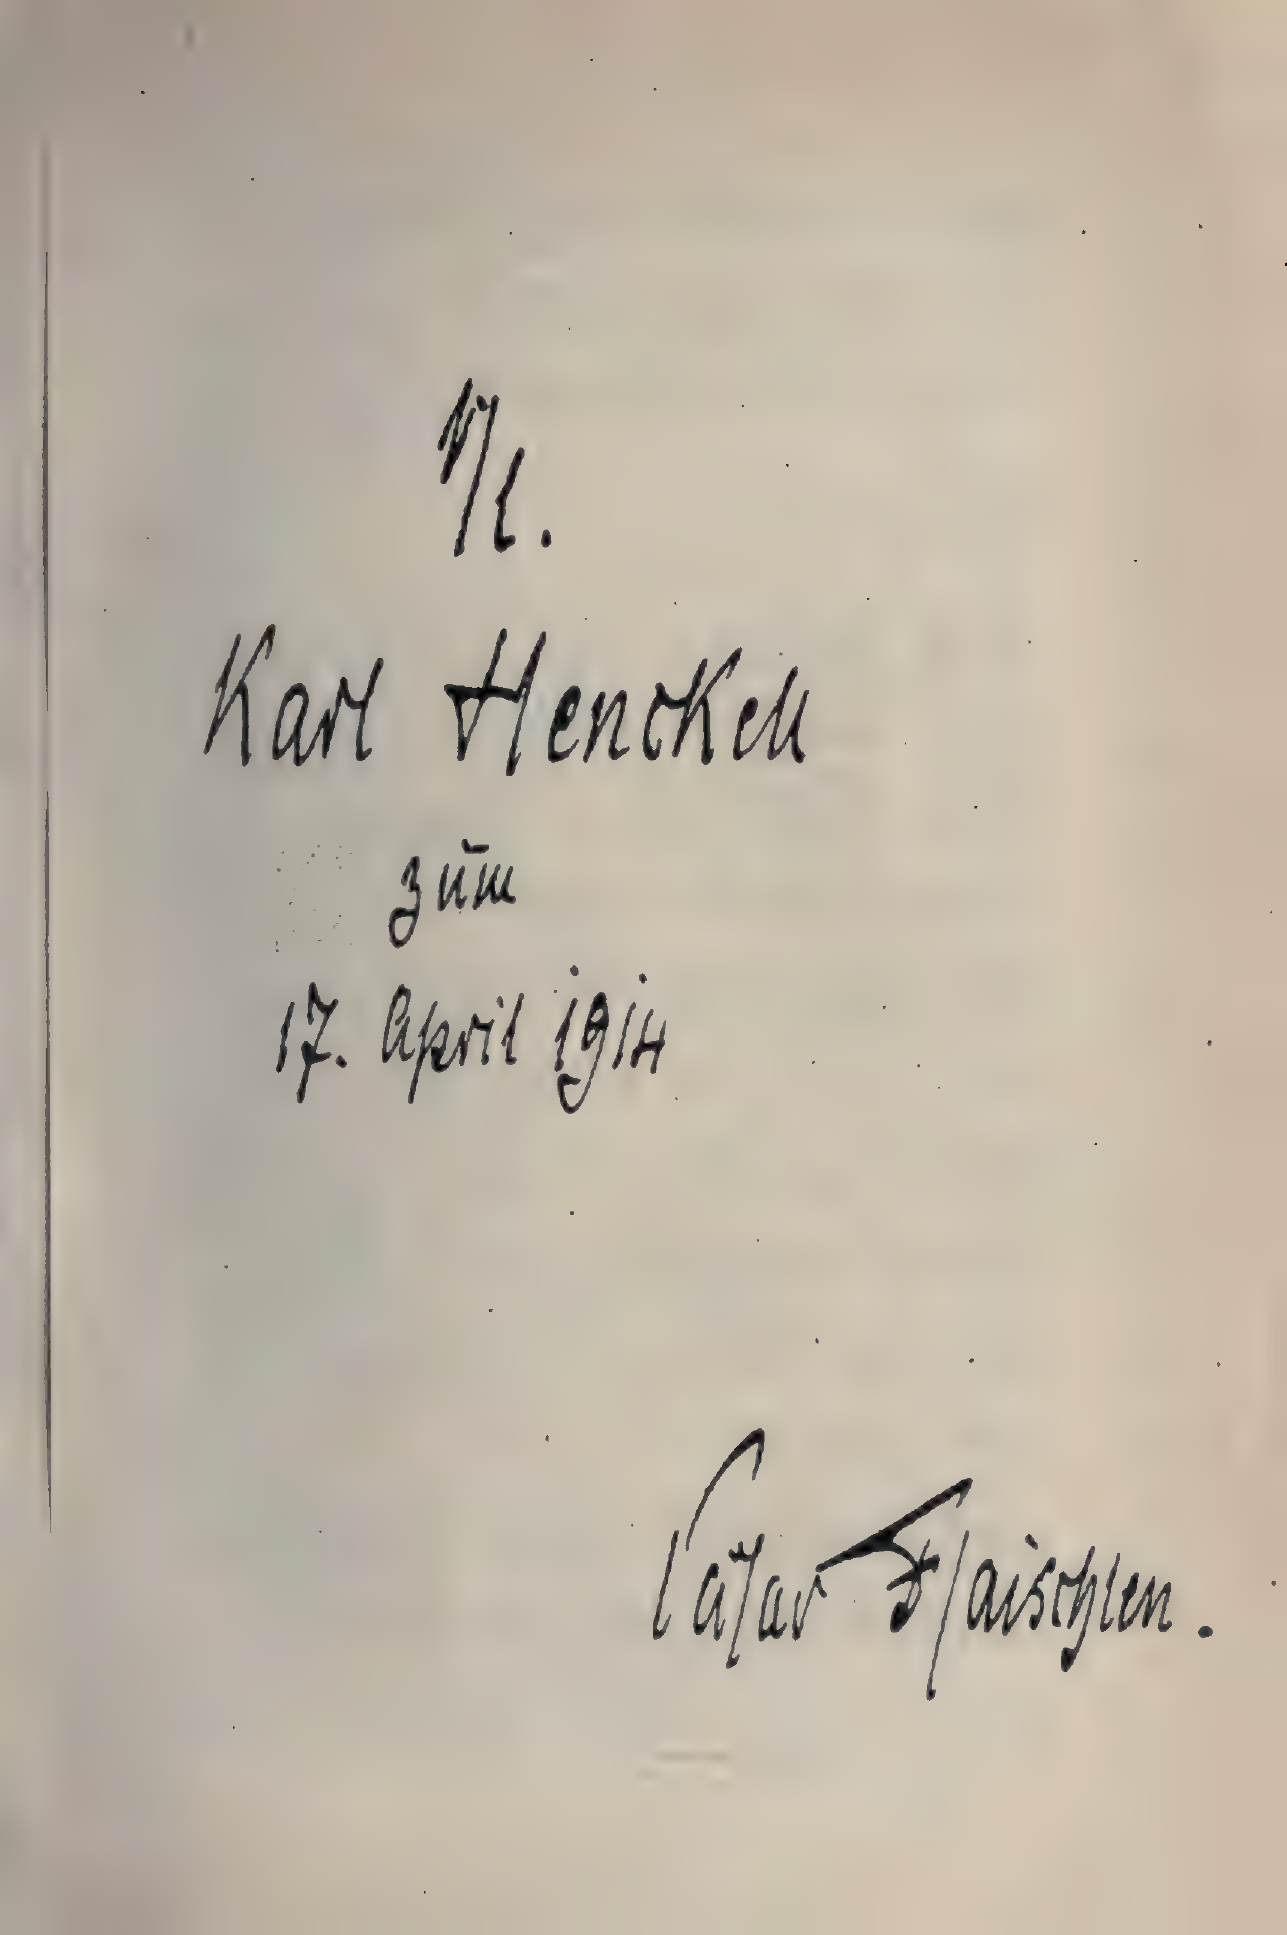 Karl Henckell
zum
17. April 1914
Cäsar Flaischlen.